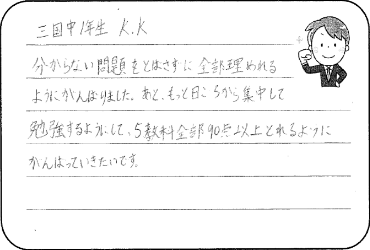 三国中1年生 K.K
分からない問題をとばさずに全部埋めれる
ようにがんばりました。あと、もっと日ごろから集中して
勉強するようにして、5教科全部90点以上とれるように
がんばっていきたいです。